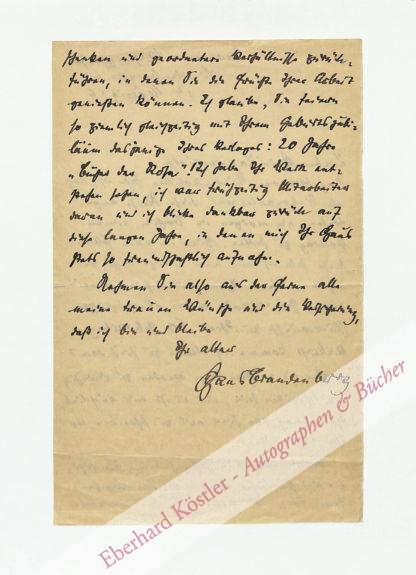 schenken und geordnetere Verhältnisse zurück-
führen, in denen Sie die Früchte Ihrer Arbeit
genießen können. Ich glaube, Sie feiern
so ziemlich gleichzeitig mit Ihrem Geburtsjubi-
läum dasjenige Ihres Verlages: 20 Jahre
„Bücher der Rose“! Ich habe Ihr Werk ent-
stehen sehen, ich war frühzeitig Mitarbeiter
daran und ich blicke dankbar zurück auf
diese langen Jahre, in denen mich Ihr Haus
stets so freundschaftlich aufnahm.
Nehmen Sie also aus der Ferne alle
meine treuen Wünsche und die Versicherung,
daß ich bin und bleibe
Ihr alter
Hans Brandenburg
Eberhard Köstler - Autographen & Bücher